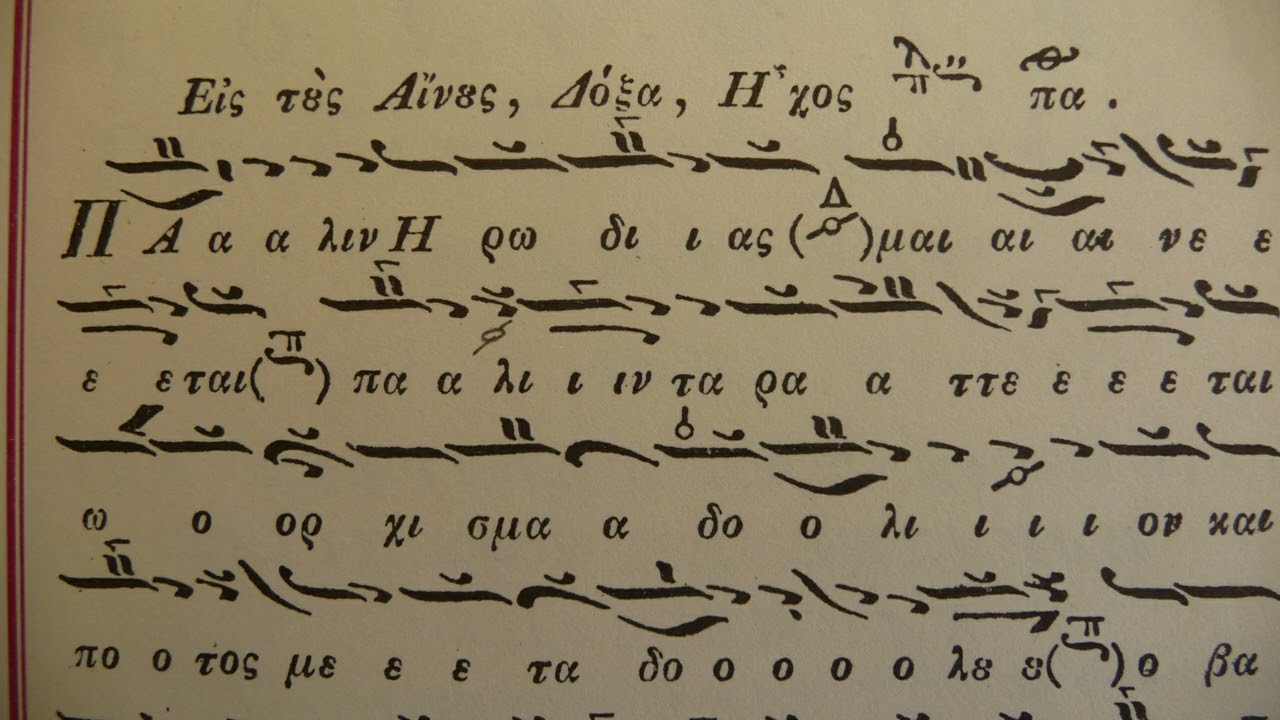 Εἰς τȣ̀ς Αἴνȣς, Δόξα, Ἦχος πα.
ΠΑ α α λιν Η ρω δι ι ας (Δ) μαι αι αι νε ε
ε ε ται (π) πα α λι ι ιν τα ρα α ττε ε ε ε ται
ω ο ορ χι σμα α δο ο λι ι ι ι ον και
πο ο τος με ε ε τα δο ο ο ο ο λȣ ȣ (π) ο βα